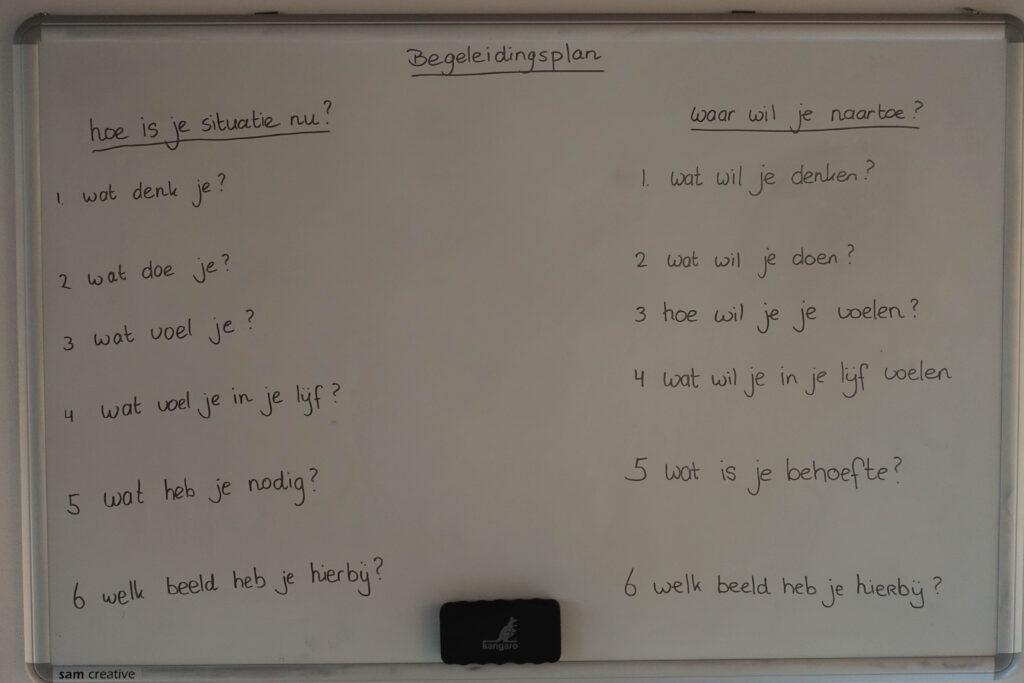 Begeleidingsplan
hoe is je situatie nu?
1. wat denk je?
2 wat doe je?
3 wat voel je?
4 wat voel je in je lijf?
5 wat heb je nodig?
6 welk beeld heb je hierbij?
waar wil je naartoe?
1. wat wil je denken?
2 wat wil je doen?
3 hoe wil je je voelen?
4 wat wil je in je lijf voelen
5 wat is je behoefte?
6 welk beeld heb je hierbij?
kangaro
sam creative